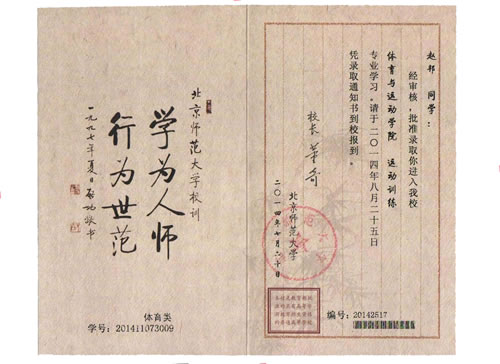 北京师范大学校训
学为人师
行为世范
一九九七年夏日启功敬书
体育类
学号：201411073009
赵 同学：
经审核，批准录取你进入我校
体育与运动学院 运动训练
专业学习。请于二〇一四年八月二十五日
凭录取通知书到校报到。
校长 董奇
北京师范大学
二〇一四年七月二十日
编号：20142517